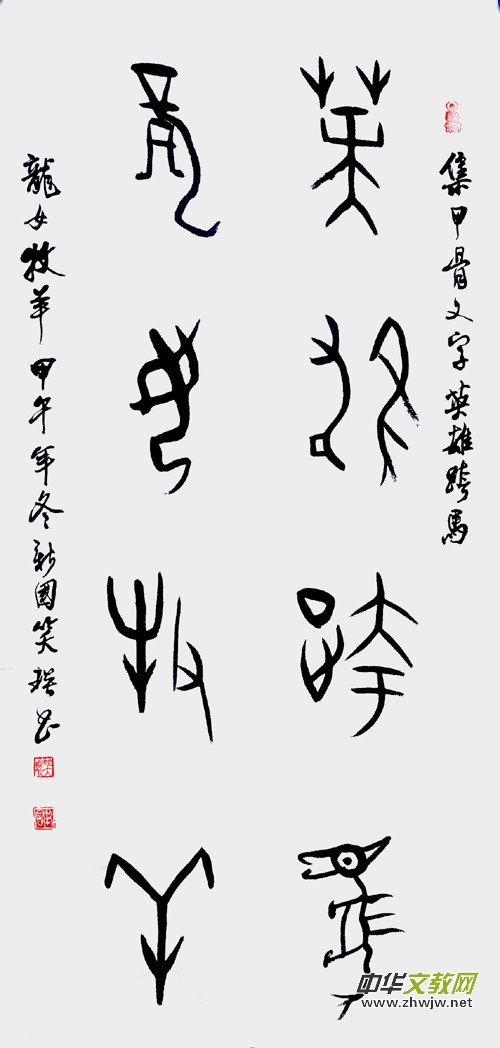 集甲骨文字英雄跨馬
英雄跨馬
龍女牧羊
龍女牧羊甲午年冬國笑书
中华文教网
www.zhwjw.net